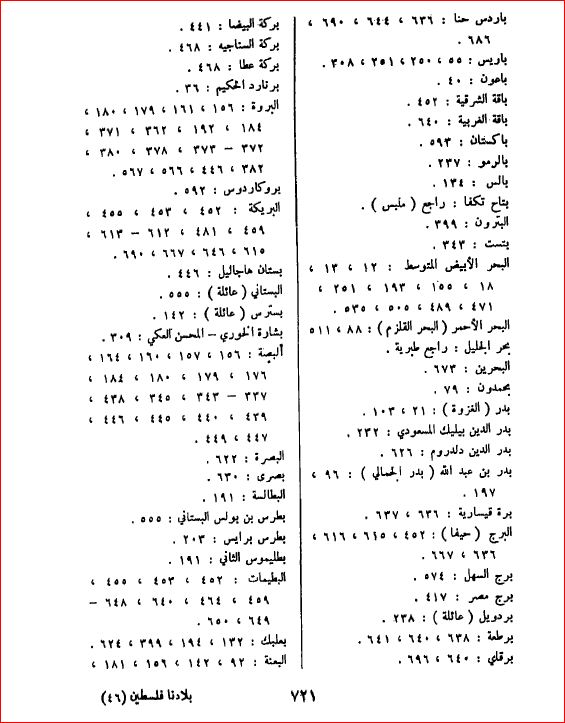 باردس حنا : ٦٣٦ ، ٦٤٤ ، ٦٩٠ ،
٦٨٦ .
باريس : ٥٥ ، ٢٥٠ ، ٢٥١ ، ٣٠٨ .
باعون : ٤٠ .
باقة الشرقية : ٤٥٢ .
باقة الغربية : ٦٤٠ .
باكستان : ٥٩٣ .
بالرمو : ٢٣٧ .
بالس : ١٣٤ .
بتاح تكفا : راجع ( ملبس ) .
البترون : ٣٩٩ .
بتست : ٣٤٣ .
البحر الأبيض المتوسط : ١٢ ، ١٣ ،
١٨ ، ١٥٥ ، ١٩٣ ، ٢٥١ ،
٤٧١ ، ٤٨٩ ، ٥٠٥ ، ٥٣٥ .
البحر الأحمر ( البحر القلزم ) : ٨٨ ، ٥١١
بحر الجليل : راجع طبرية .
البحرين : ٦٧٣ .
بحمدون : ٧٩ .
بدر ( الغزوة ) : ٢١ ، ١٠٣ .
بدر الدين بيليك المسعودي : ٢٣٢ .
بدر الدين دلدروم : ٦٢٦ .
بدر بن عبد الله ( بدر الحمالي ) : ٩٦ ،
١٩٧ .
برة قيسارية : ٦٣٦ ، ٦٣٧ .
البرج ( حيفا ) : ٤٥٢ ، ٦١٥ ، ٦١٦ ،
٦٣٦ ، ٦٦٧ .
برج السهل : ٥٧٤ .
برج مصر : ٤١٧ .
بردويل ( عائلة ) : ٢٣٨ .
برطعة : ٦٣٨ ، ٦٤٠ ، ٦٤١ .
برقلي : ٦٤٠ ، ٦٩٦ .
بركة البيضا : ٤٤١ .
بركة الستاجيه : ٤٦٨ .
بركة عطا : ٤٦٨ .
برنارد الحكيم : ٣٦ .
البروة : ١٥٦ ، ١٦١ ، ١٧٩ ، ١٨٠ ،
١٨٤ ، ١٩٢ ، ٣٦٢ ، ٣٧١ ،
٣٧٢ – ٣٧٣ ، ٣٧٨ ، ٣٨٠ ،
٣٨٢ ، ٤٤٦ ، ٥٦٦ ، ٥٦٧ .
بروكاردوس : ٥٩٢ .
البريكة : ٤٥٢ ، ٤٥٣ ، ٤٥٥ ،
٤٥٩ ، ٤٨١ ، ٦١٢ – ٦١٣ ،
٦١٥ ، ٦٤٦ ، ٦٦٧ ، ٦٩٠ .
بستان هاجاليل : ٤٤٦ .
البستاني ( عائلة ) : ٥٥٥ .
بسترس ( عائلة ) : ١٤٢ .
بشارة الخوري – المحسن العكي : ٣٠٩ .
البصة : ١٥٦ ، ١٥٧ ، ١٦٠ ، ١٦٤ ،
١٧٦ ، ١٧٩ ، ١٨٠ ، ١٨٤ ،
٣٣٧ – ٣٤٣ ، ٣٤٥ ، ٤٣٨ ،
٤٣٩ ، ٤٤٠ ، ٤٤٥ ، ٤٤٦ ،
٤٤٧ ، ٤٤٩ .
البصرة : ٦٢٢ .
بصرى : ٦٣٠ .
البطالسة : ١٩١ .
بطرس بن بولس البستاني : ٥٥٥ .
بطرس برايس : ٢٠٣ .
بطليموس الثاني : ١٩١ .
البطيمات : ٤٥٢ ، ٤٥٣ ، ٤٥٥ ،
٤٥٩ ، ٤٦٤ ، ٦٤٠ ، ٦٤٨ –
٦٤٩ ، ٦٥٠ .
بعلبك : ١٣٢ ، ١٩٤ ، ٣٩٩ ، ٦٢٤ .
البعنة : ٩٢ ، ١٤٢ ، ١٥٦ ، ١٨١ ،
٧٢١
بلادنا فلسطين (٤٦)